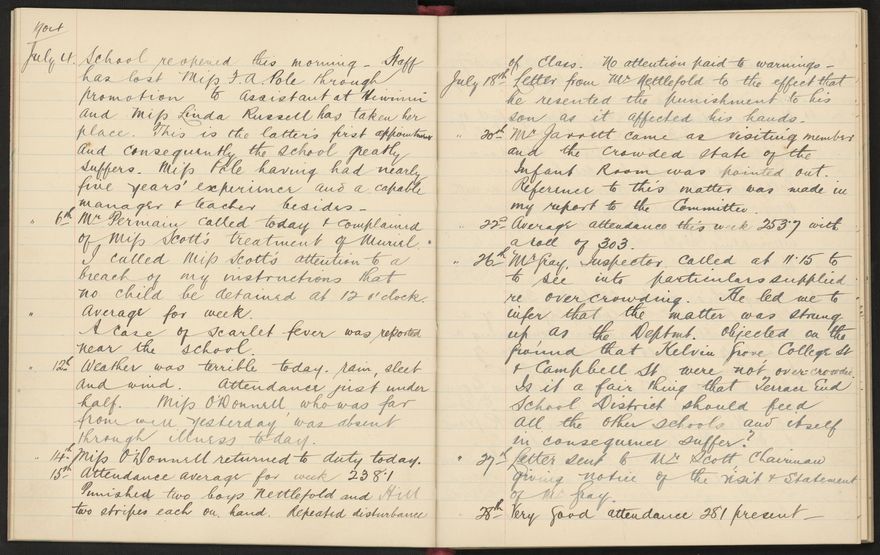 July 4. School reopened this morning - Staff
has lost Miss F. A. Pole through
promotion to Assistant at Hiwinui
and Miss Linda Russell has taken her
place. This is the latter's first appointment
and consequently the school greatly
suffers. Miss Pole having had nearly
five years' experience and a capable
manager & teacher besides -
" 6th Mr Permain called today & complained
of Miss Scott's treatment of Muriel.
I called Miss Scott's attention to a
breach of my instructions that
no child be detained at 12 o'clock.
" Average for week.
A case of scarlet fever was reported
near the school.
" 12th Weather was terrible today. rain, sleet
and wind. Attendance just under
half. Miss O'Donnell, who was far
from well yesterday, was absent
through illness today.
" 14th Miss O'Donnell returned to duty today.
15th Attendance average for week 238.1
Punished two boys Nettlefold and Hill
two stripes each on hand. Repeated disturbance
of class. No attention paid to warnings -
July 18th Letter from Mr Nettlefold to the effect that
he resented the punishment to his
son as it affected his hands.
" 20th Mr Jarrett came as visiting member
and the crowded state of the
Infant Room was pointed out.
Reference to this matter was made in
my report to the Committee.
" 22nd Average attendance this week 253.7 with
a roll of 303.
" 26th Mr Gray, Inspector called at 11.15 to
to see into particulars supplied
re overcrowding. He led me to
infer that the matter was strung
up as the Deptmt. objected on the
ground that Kelvin Grove College St
& Campbell St were not overcrowded.
Is it a fair thing that Terrace End
School District should feed
all the other schools and itself
in consequence suffer?
" 27th Letter sent to Mr Scott Chairman
giving notice of the visit & statement
of Mr Gray.
28th Very good attendance 281 present -